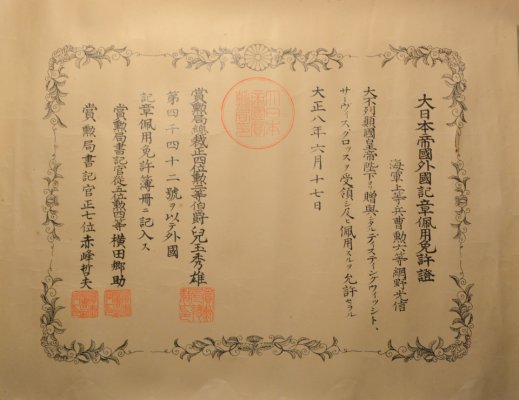 大日本帝國外國記章佩用免許證
海軍上等兵曹勲六等網野光信
大不列顛國皇帝陛下ヨリ贈與シタルディスティングウィッシト、
サーヴィスクロッスヲ受領シ及ヒ佩用スルヲ允許セラル
大正八年六月十七日
賞勲局總裁正四位勲二等伯爵兒玉秀雄
第四千四十二號ヲ以テ外國
記章佩用免許簿冊ニ記入ス
賞勲局書記官從五位勲四等横田郷助
賞勲局書記官正七位赤峰哲夫